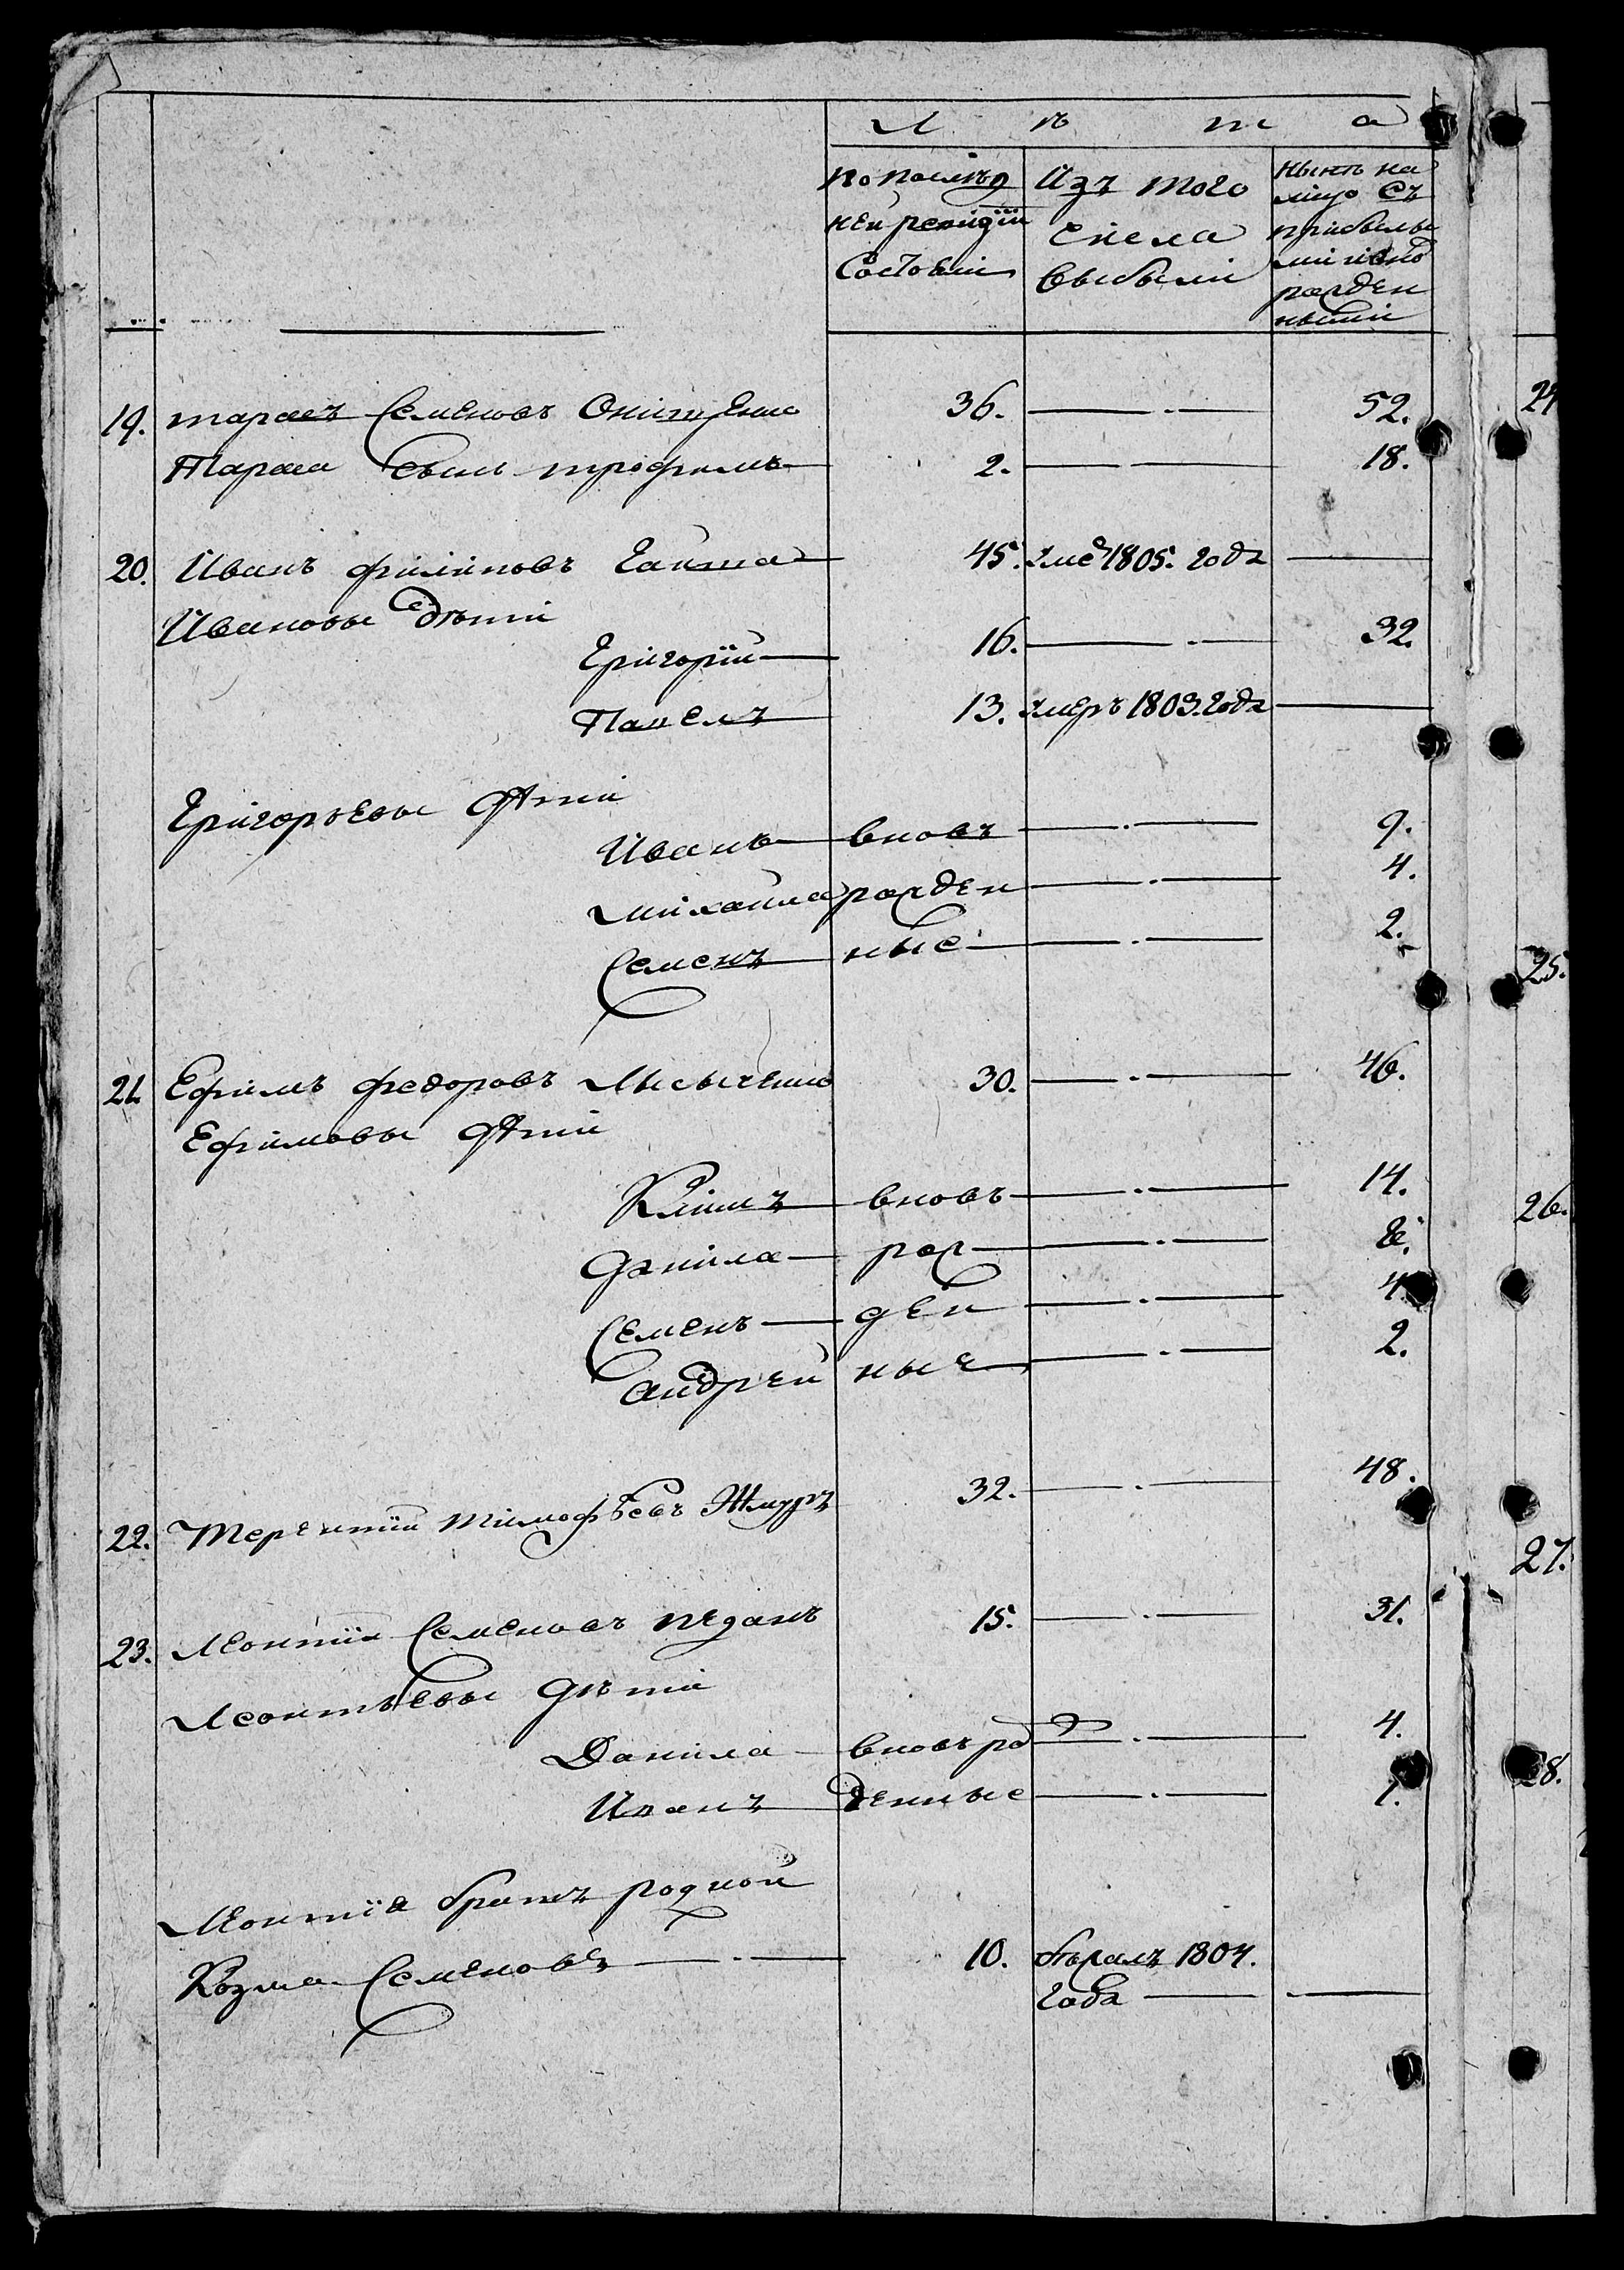 Л ѣ т а
по послѣд
ней ревизіи
состояли
Изъ того
числа
выбыли
Нынѣ на
лицо съ
прибылы
ми и вно
рожден
ными
19. Тарасъ Семеновъ Онищенко 36. 52.
Тараса сынъ Трофимъ 2. 18.
20. Иванъ Филиповъ Гайта 45. 1805. года
Ивановы дѣти
Григорій 16. 32.
Павелъ 13. умеръ 1803. года
Григорьевы дѣти
Иванъ вновь 9.
Михайла рожден 4.
Семенъ ные 2.
21. Ефимъ Федоровъ Лисыченко 30. 46.
Ефимовы дѣти
Климъ вновь 14.
Данила рож 8.
Семенъ ден 4.
Андрей ные 2.
22. Терентій Тимофѣевъ Жмуръ 32. 48.
23. Леонтій Семеновъ 15. 31.
Леонтьевы дѣти
Данила вновь рож 4.
Иванъ денные 1.
Леонтія братъ родной
Козма Семеновъ 10. бѣжалъ 1804.
года
25.
26.
27.
28.